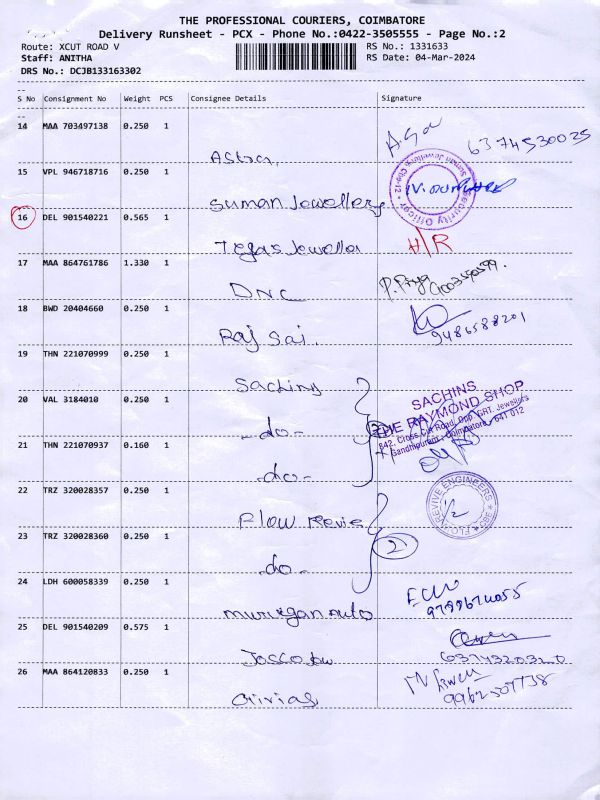 THE PROFESSIONAL COURIERS, COIMBATORE
Delivery Runsheet - PCX - Phone No.:0422-3505555 - Page No.:2
Route: XCUT ROAD V
RS No.: 1331633
Staff: ANITHA
RS Date: 04-Mar-2024
DRS No.: DCJB133163302
S No Consignment No Weight PCS Consignee Details Signature
14 MAA 703497138 0.250 1
Astra,
6374530025
15 VPL 946718716 0.250 1
Suman Jewellery
Suman Jewellers, Cbe-12
Security Officer
16 DEL 901540221 0.565 1
Tegas Jewella
H/R
17 MAA 864761786 1.330 1
DNC
P. Priya
18 BWD 20404660 0.250 1
Raj Sai.
9486588201
19 THN 221070999 0.250 1
Sachins
20 VAL 3184010 0.250 1
-do-
SACHINS
THE RAYMOND SHOP
842, Cross Cut Road, Opp. GRT. Jewellers
Gandhipuram, Coimbatore - 641 012
21 THN 221070937 0.160 1
-do-
22 TRZ 320028357 0.250 1
Flow Revie
FLOWREVIVE ENGINEERS
1/2
23 TRZ 320028360 0.250 1
-do-
2
24 LDH 600058339 0.250 1
murugan auto
25 DEL 901540209 0.575 1
Joscco
6374320320
26 MAA 864120833 0.250 1
Girias
9962507738